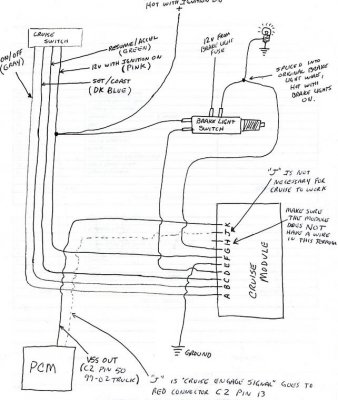 HOT WITH IGNITION ON
+
CRUISE
SWITCH
ON/OFF
(GRAY)
RESUME/ACCEL
(GREEN)
12V WITH IGNITION ON
(PINK)
SET/COAST
(DK BLUE)
12V FROM
BRAKE LIGHT
FUSE
SPLICED INTO
ORIGINAL BRAKE
LIGHT WIRE,
HOT WITH
BRAKE LIGHTS
ON.
BRAKE LIGHT
SWITCH
"J" IS NOT
NECESSARY FOR
CRUISE TO WORK
MAKE SURE
THE MODULE
DOES NOT
HAVE A WIRE
IN THIS TERMINAL
K
J
H
G
F
E
D
C
B
A
CRUISE
MODULE
GROUND
PCM
VSS OUT
(C2 PIN 50
99-02 TRUCK)
"J" IS "CRUISE ENGAGE SIGNAL" GOES TO
RED CONNECTOR C2 PIN 13